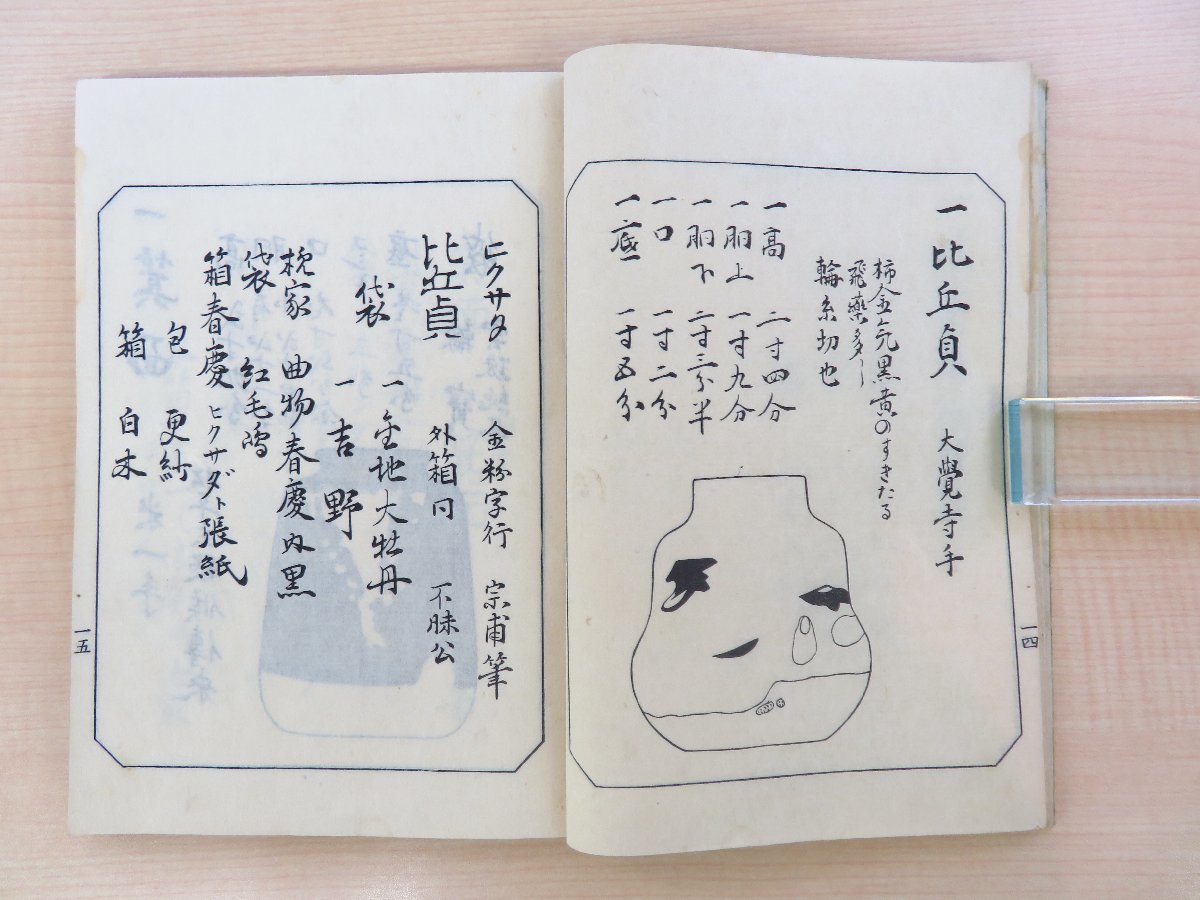 一 比丘貞 大覺寺手
柿金氣黒黄のすきたる
飛藥多し
輪糸切也
一高 二寸四分
一胴上 一寸九分
一胴下 二寸三分半
一口 一寸二分
一底 一寸五分
一四
ヒクサタ 金粉字行 宗甫筆
比丘貞 外箱同 不昧公
袋 一金地大牡丹
一吉野
挽家 曲物春慶内黒
袋 紅毛嶋
箱春慶 ヒクサダト張紙
包 更紗
箱 白木
一五